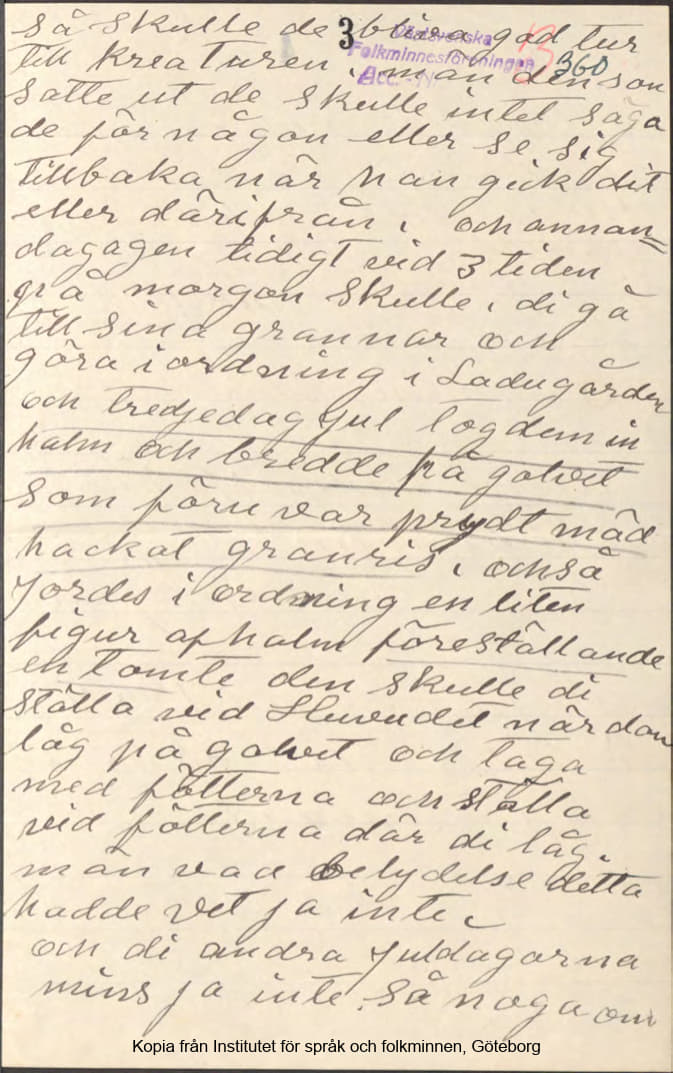 3
Västsvenska
Folkminnesföreningen
Acc.
B
360
så skulle de blira god tur
till kreaturen, män den som
satte ut de skulle intet säga
de för någon eller se sig
tillbaka när han gick dit
eller därifrån, och annan=
dagagen tidigt vid 3 tiden
på morgon skulle, di gå
till sina grannar och
göra i ordning i Ladugården
och tredjedag jul tog dem in
halm och bredde på golvet
som föru var prydt mäd
hackat granris, också
jordes i ordning en liten
figur af halm föreställande
en tomte den skulle di
ställa vid Huvudet när don
låg på golvet och taga
med fötterna och ställa
vid fötterna där di låg,
män vad betydelse detta
hadde vet ja inte,
och di andra juldagarna
mins ja inte, så noga om
Kopia från Institutet för språk och folkminnen, Göteborg